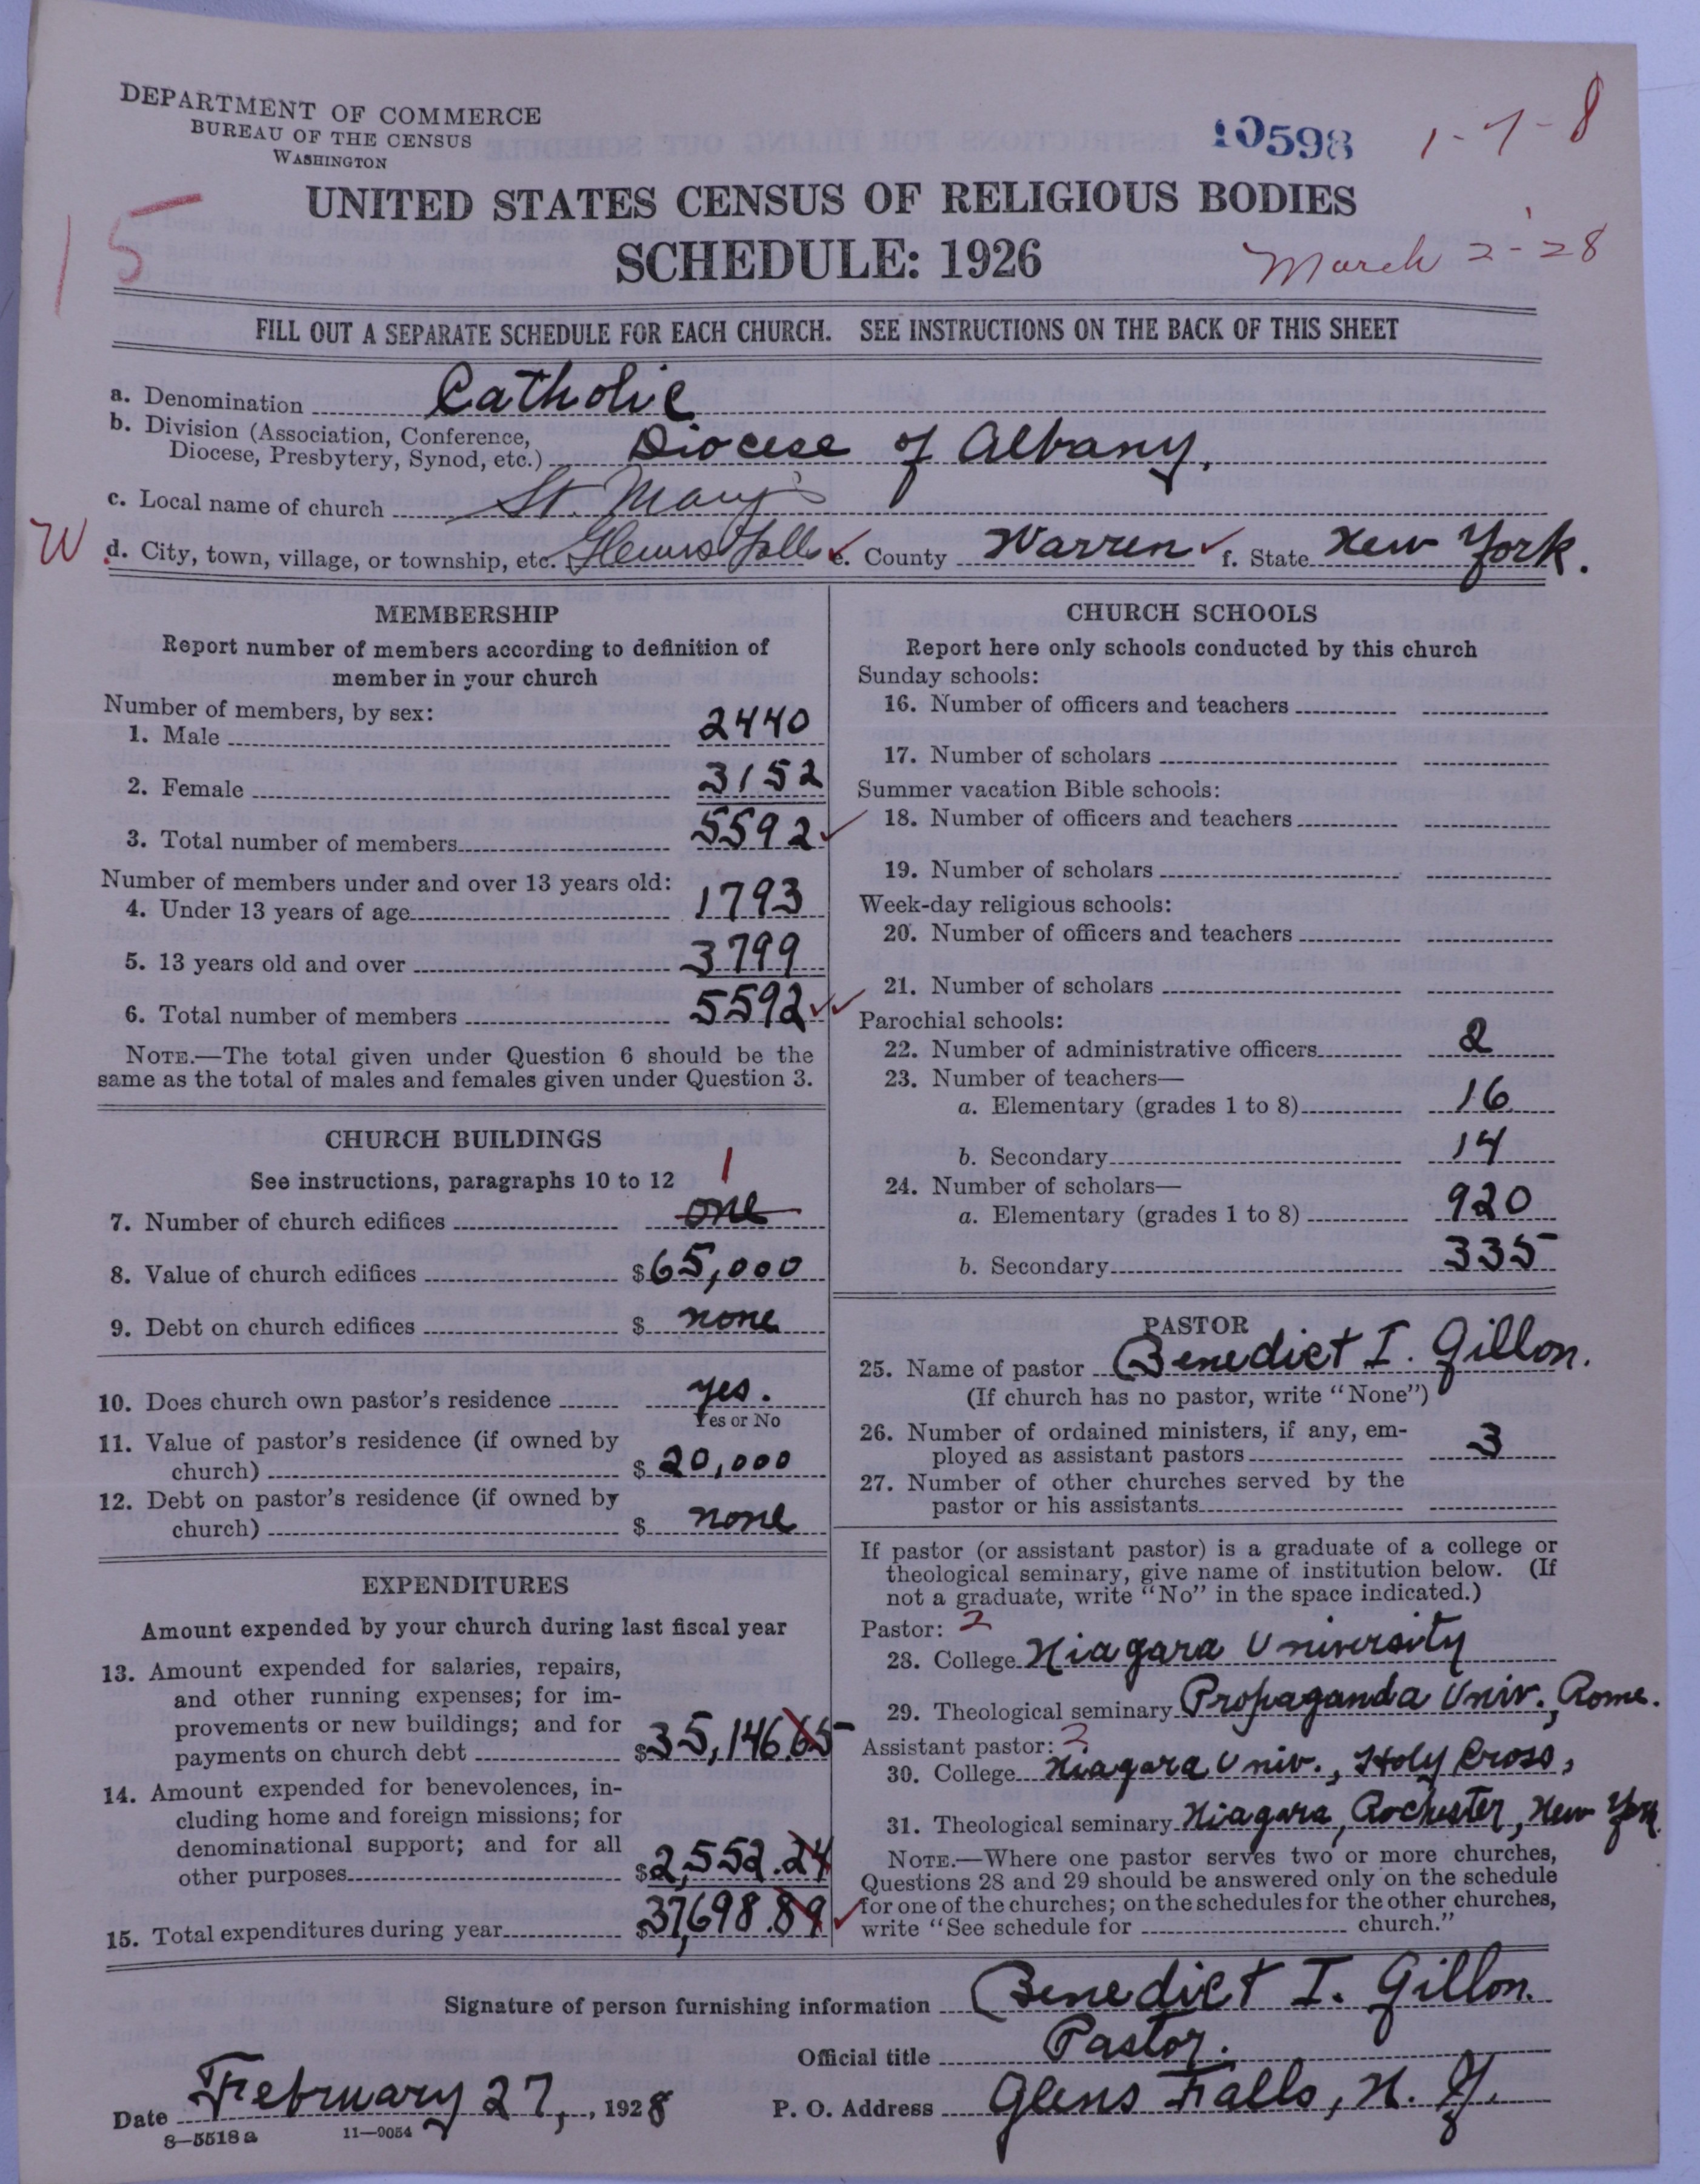 DEPARTMENT OF COMMERCE
BUREAU OF THE CENSUS
WASHINGTON
10598
1-7-8
15
UNITED STATES CENSUS OF RELIGIOUS BODIES
SCHEDULE: 1926
March 2-'28
FILL OUT A SEPARATE SCHEDULE FOR EACH CHURCH. SEE INSTRUCTIONS ON THE BACK OF THIS SHEET
a. Denomination Catholic
b. Division (Association, Conference,
Diocese, Presbytery, Synod, etc.) Diocese of Albany.
c. Local name of church St. Mary's
W
d. City, town, village, or township, etc. Glens Falls e. County Warren f. State New York.
MEMBERSHIP
Report number of members according to definition of
member in your church
Number of members, by sex:
1. Male 2440
2. Female 3152
3. Total number of members 5592
Number of members under and over 13 years old:
4. Under 13 years of age 1793
5. 13 years old and over 3799
6. Total number of members 5592
NOTE.—The total given under Question 6 should be the
same as the total of males and females given under Question 3.
CHURCH BUILDINGS
See instructions, paragraphs 10 to 12
1
7. Number of church edifices one
8. Value of church edifices $65,000
9. Debt on church edifices $ none
10. Does church own pastor's residence yes.
Yes or No
11. Value of pastor's residence (if owned by
church) $ 20,000
12. Debt on pastor's residence (if owned by
church) $ none
EXPENDITURES
Amount expended by your church during last fiscal year
13. Amount expended for salaries, repairs,
and other running expenses; for im-
provements or new buildings; and for
payments on church debt $35,146.65
14. Amount expended for benevolences, in-
cluding home and foreign missions; for
denominational support; and for all
other purposes $2,552.24
15. Total expenditures during year $37,698.89
CHURCH SCHOOLS
Report here only schools conducted by this church
Sunday schools:
16. Number of officers and teachers
17. Number of scholars
Summer vacation Bible schools:
18. Number of officers and teachers
19. Number of scholars
Week-day religious schools:
20. Number of officers and teachers
21. Number of scholars
Parochial schools:
22. Number of administrative officers 2
23. Number of teachers—
a. Elementary (grades 1 to 8) 16
b. Secondary 14
24. Number of scholars—
a. Elementary (grades 1 to 8) 920
b. Secondary 335
PASTOR
25. Name of pastor Benedict I. Gillon.
(If church has no pastor, write "None")
26. Number of ordained ministers, if any, em-
ployed as assistant pastors 3
27. Number of other churches served by the
pastor or his assistants
If pastor (or assistant pastor) is a graduate of a college or
theological seminary, give name of institution below. (If
not a graduate, write "No" in the space indicated.)
Pastor: 2
28. College Niagara University
29. Theological seminary Propaganda Univ., Rome.
Assistant pastor: 2
30. College Niagara Univ., Holy Cross,
31. Theological seminary Niagara, Rochester, New York.
NOTE.—Where one pastor serves two or more churches,
Questions 28 and 29 should be answered only on the schedule
for one of the churches; on the schedules for the other churches,
write "See schedule for church."
Signature of person furnishing information Benedict I. Gillon.
Official title Pastor.
Date February 27, , 1928 P. O. Address Glens Falls, N. Y.
8—5518a 11—9054